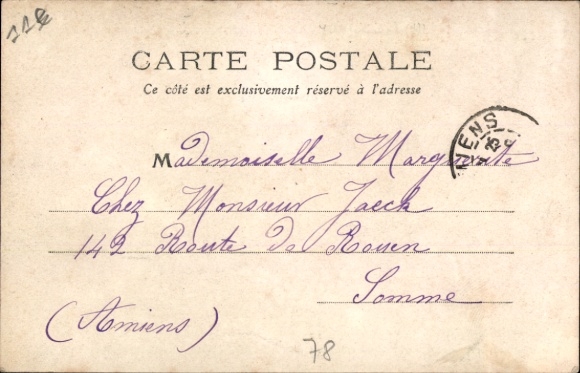 CARTE POSTALE
Ce côté est exclusivement réservé à l'adresse
Mademoiselle Marguerite
Chez Monsieur Jaeck
142 Route de Rouen
Somme
(Amiens)
78